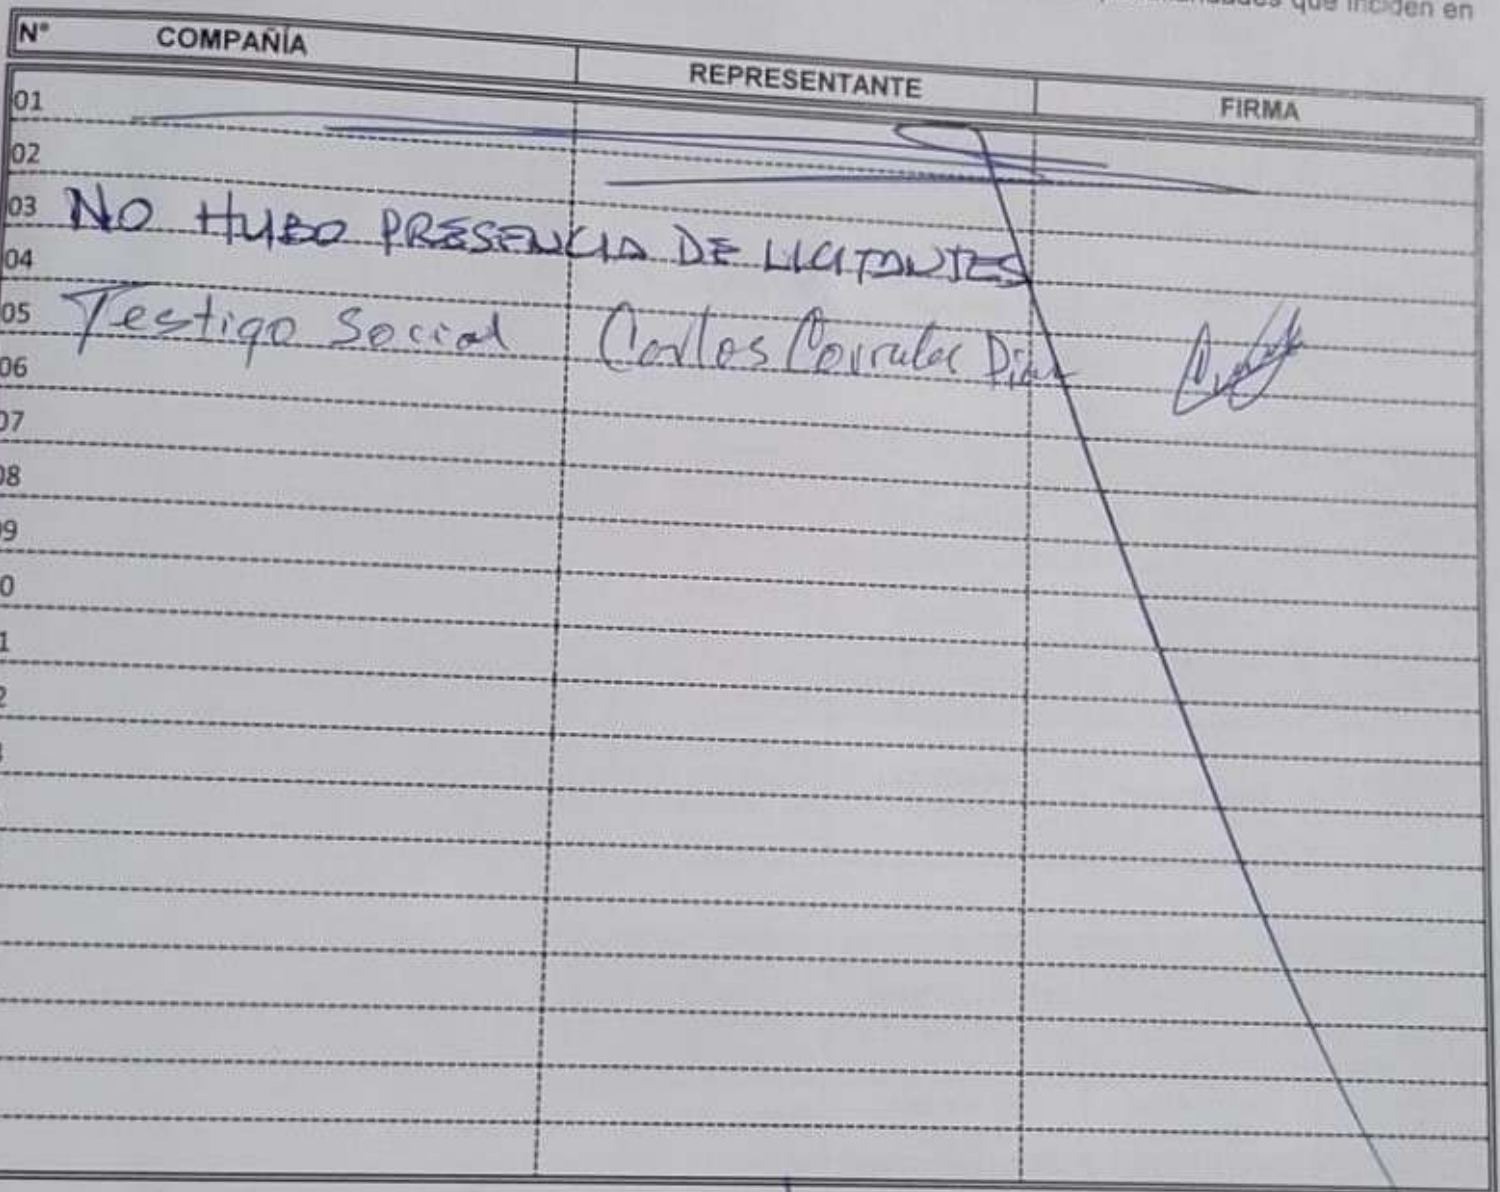 que inciden en
N° COMPAÑÍA REPRESENTANTE FIRMA
01
02
03 NO HUBO PRESENCIA DE LICITANTES
04
05 Testigo Social Carlos Corrales Diaz
06
07
08
09
0
1
2